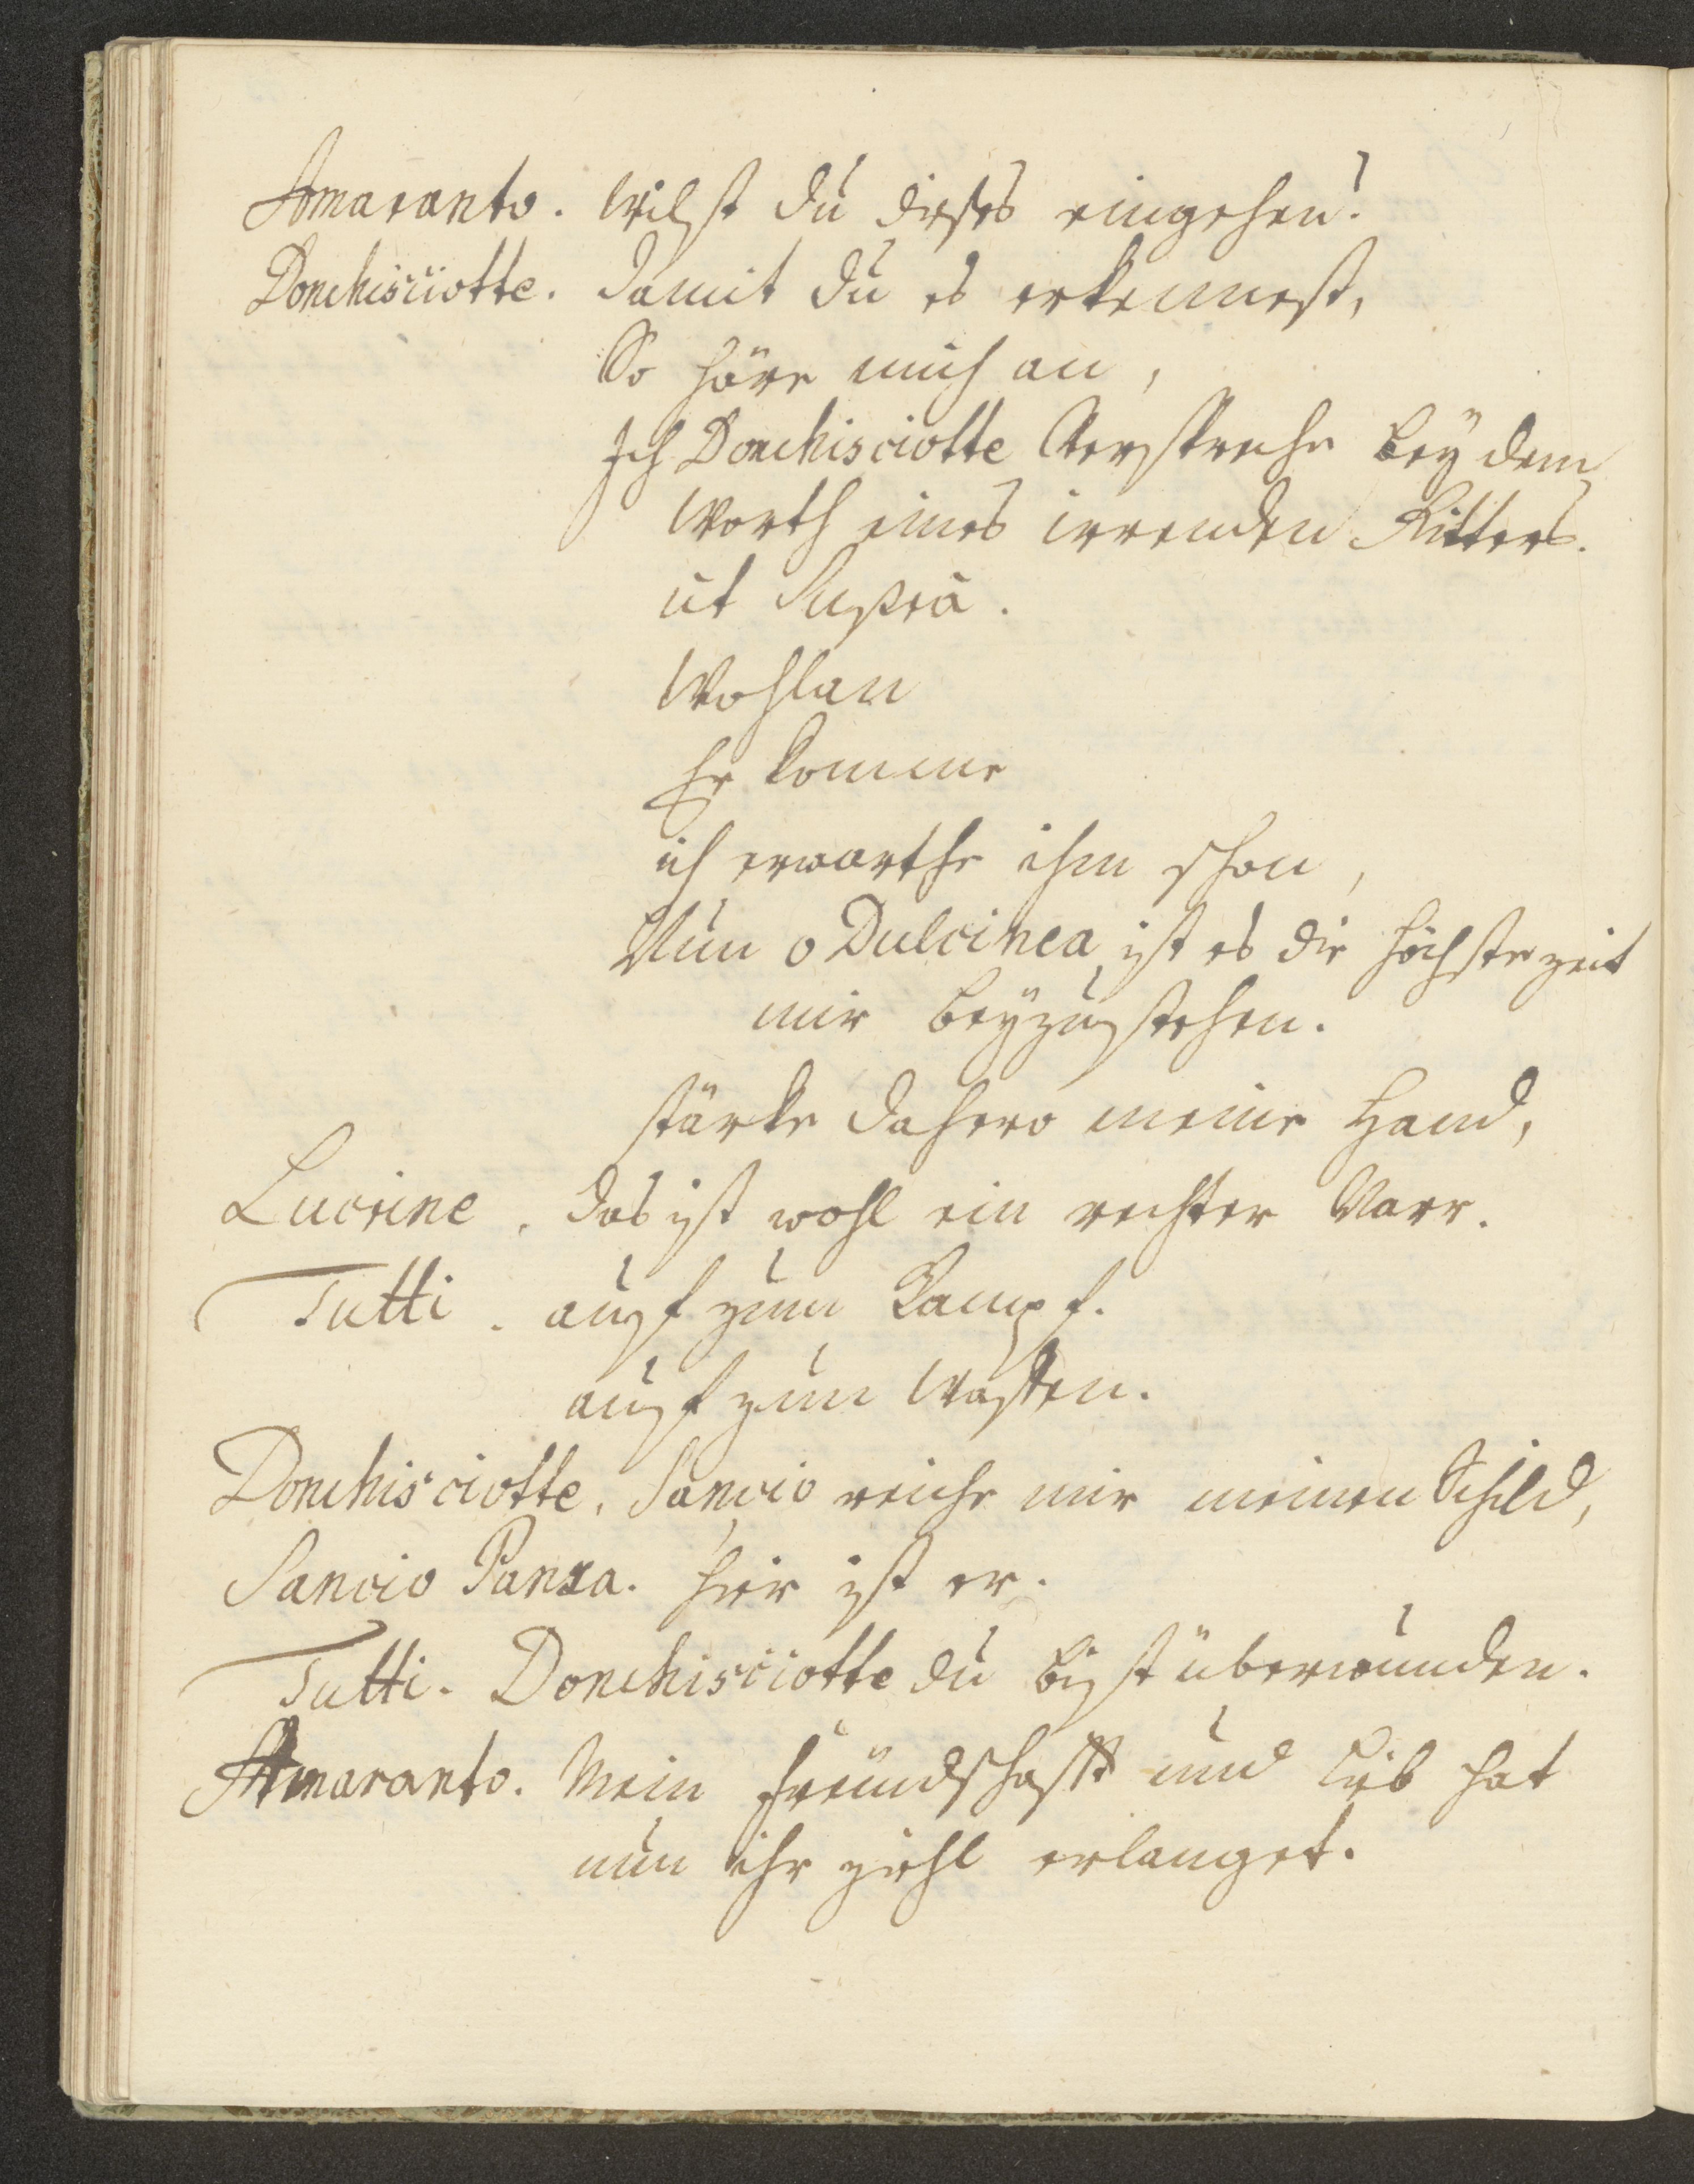 Amaranto. Wilst du dieses eingehen?
Donchisciotte. Damit du es erkennest,
So höre mich an,
Ich Donchisciotte Verspreche bey dem
Worth eines irrenden Ritters.
ut Supra.
Wohlan
Er komme
ich erwarthe ihm schon,
Nun o Dulcinea ist es die höchste zeit
mir beyzustehen.
stärke dahero meine Hand,
Lucrine. Das ist wohl ein rechter Narr.
Tutti. auf zum Kampf.
auf zum Waffen.
Donchisciotte. Sancio reiche mir meinen Schild,
Sancio Panza. hier ist er.
Tutti. Donchisciotte du bist überwunden.
Amaranto. Mein freundschafft und Lieb hat
nun ihr ziehl erlanget.